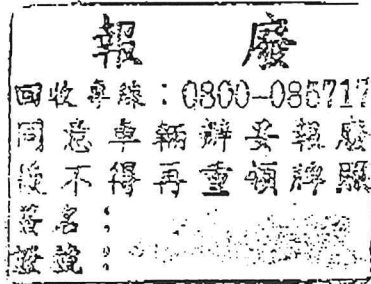 報 廢
回收專線：0800-085717
同意車輛辦妥報廢
後不得再重領牌照
簽名：
證號：